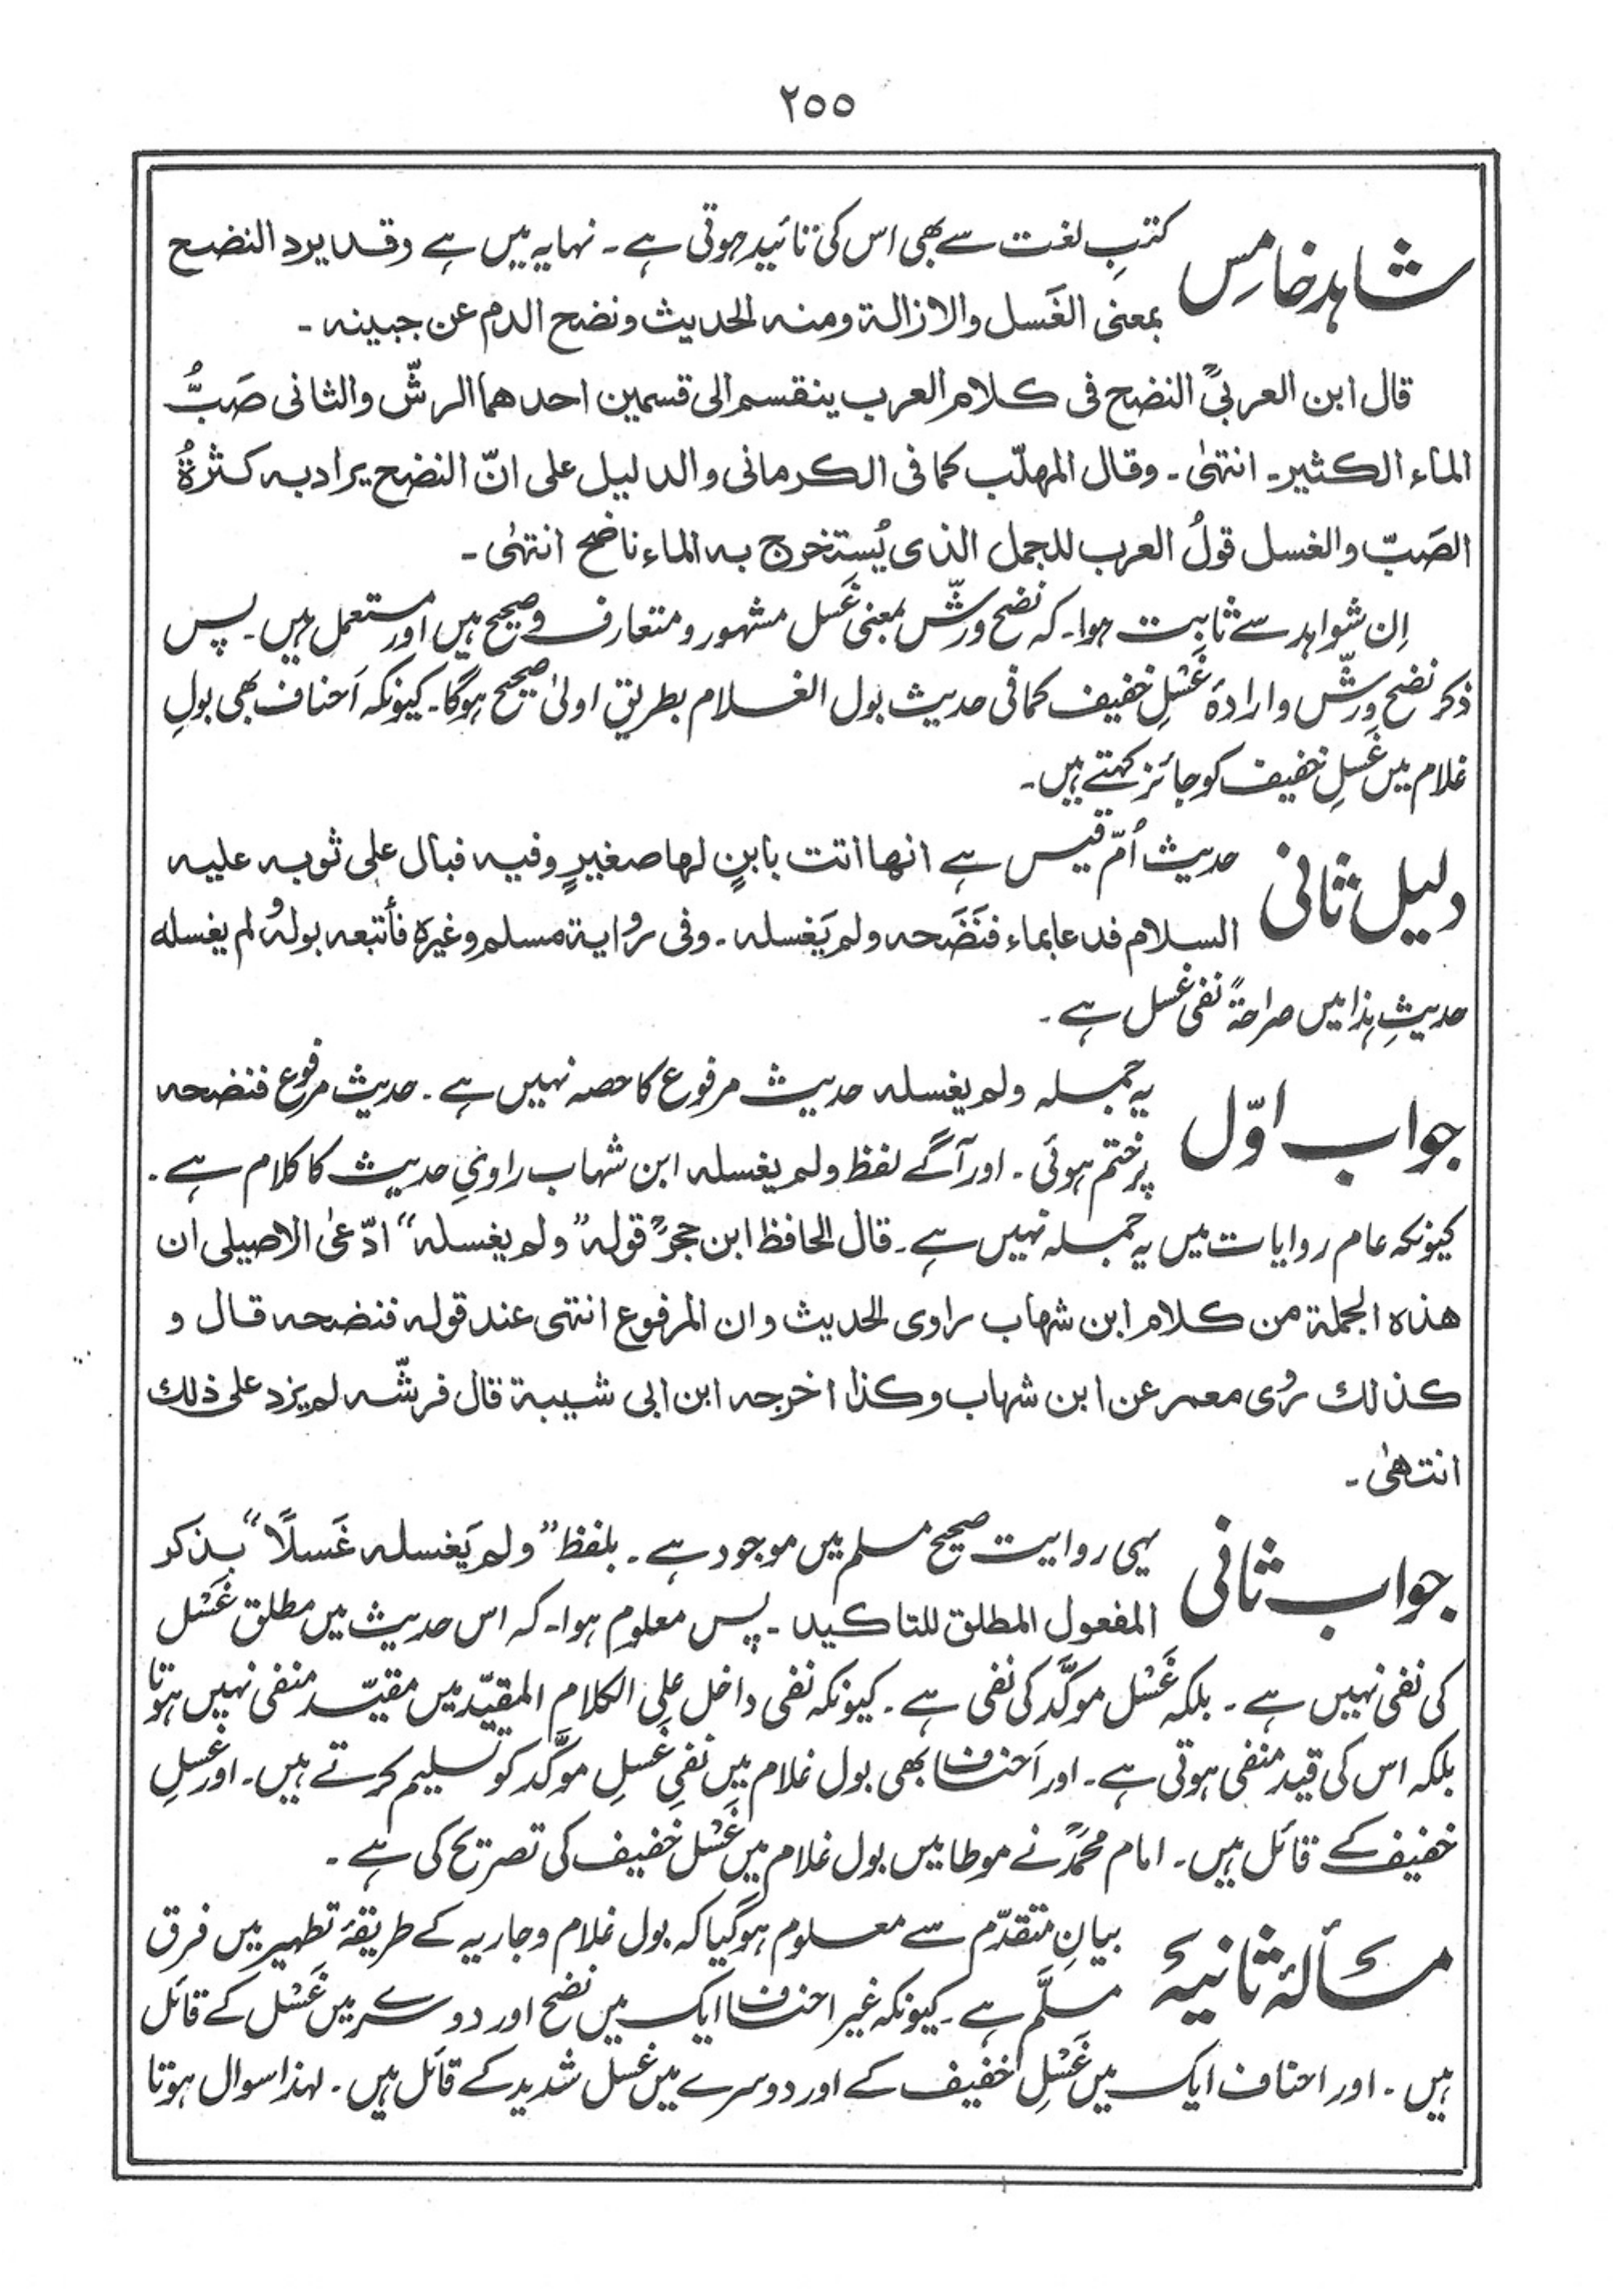 ٢٥٥
شاہد خامِس کتبِ لغت سے بھی اس کی تائید ہوتی ہے۔ نہایہ میں ہے وقد یرد النضح
بمعنی الغَسل والازالۃ ومنہ الحدیث ونضح الدم عن جبینہ۔
قال ابن العربیؒ النضح فی کلام العرب ینقسم الی قسمین احدھما الرشّ والثانی صَبُّ
الماء الکثیر۔ انتہٰی۔ وقال المھلّب کما فی الکرمانی والدلیل علی انّ النضح یراد بہ کثرۃُ
الصَبّ والغسل قولُ العرب للجمل الذی یُستخرج بہ الماء ناضح انتہٰی۔
اِن شواہد سے ثابت ہوا۔ کہ نضح ورشّ بمعنی غَسل مشہور ومتعارف وصحیح ہیں اور مستعمل ہیں۔ پس
ذکر نضح ورَشّ وارادۂ غَسْلِ خفیف کما فی حدیث بول الغلام بطریق اولیٰ صحیح ہوگا۔ کیونکہ اَحناف بھی بولِ
غلام میں غَسلِ خفیف کو جائز کہتے ہیں۔
دلیل ثانی حدیث اُمّ قیس ہے انھا اتت بابنٍ لھا صغیرٍ وفیہ فبال علی ثوبہ علیہ
السلام فدعا بماء فنَضَحہ ولم یَغسلہ۔ وفی رُوایۃ مسلم وغیرہٖ فأتبعہ بولہٗ ولم یغسلہ
حدیثِ ہٰذا میں صراحۃً نفی غسل ہے۔
جواب اوّل یہ جملہ ولم یغسلہ حدیث مرفوع کا حصہ نہیں ہے۔ حدیث مرفوع فنضحہ
پر ختم ہوئی۔ اور آگے لفظ ولم یغسلہ ابن شہاب راویِ حدیث کا کلام ہے۔
کیونکہ عام روایات میں یہ جملہ نہیں ہے۔ قال الحافظ ابن حجرؒ قولہ ”ولم یغسلہ“ ادّعیٰ الاصیلی ان
ھذہ الجملۃ من کلام ابن شھاب راوی الحدیث وان المرفوع انتھی عند قولہ فنضحہ قال و
کذالک رُوی معمر عن ابن شھاب وکذا اخرجہ ابن ابی شیبۃ قال فرشّہ لم یزد علی ذلک
انتھیٰ۔
جواب ثانی یہی روایت صحیح مسلم میں موجود ہے۔ بلفظ ”ولم یَغسلہ غَسلًا“ بذکر
المفعول المطلق للتاکید۔ پس معلوم ہوا۔ کہ اس حدیث میں مطلق غَسْل
کی نفی نہیں ہے۔ بلکہ غَسْل موکَّد کی نفی ہے۔ کیونکہ نفی داخل علی الکلام المقیّد میں مقیّد منفی نہیں ہوتا
بلکہ اس کی قید منفی ہوتی ہے۔ اور اَحناف بھی بول غلام میں نفیِ غَسلِ موکَّد کو تسلیم کرتے ہیں۔ اور غَسلِ
خفیف کے قائل ہیں۔ امام محمدؒ نے موطا میں بول غلام میں غَسْل خفیف کی تصریح کی ہے۔
مسألۂ ثانیہ بیانِ متقدّم سے معلوم ہوگیا کہ بول غلام وجاریہ کے طریقۂ تطہیر میں فرق
مسلَّم ہے۔ کیونکہ غیر احناف ایک میں نضح اور دوسرے میں غَسْل کے قائل
ہیں۔ اور احناف ایک میں غَسْلِ خفیف کے اور دوسرے میں غسل شدید کے قائل ہیں۔ لہذا سوال ہوتا